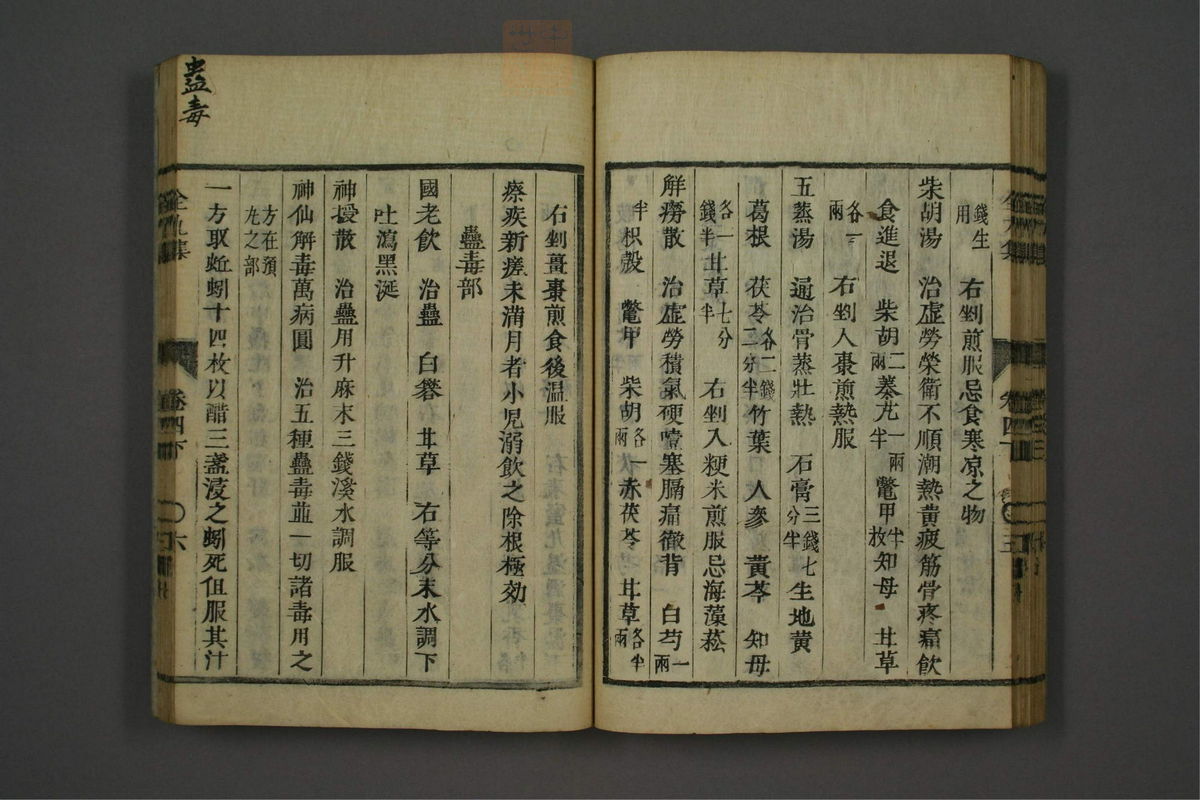 錢生
用
右剉煎服忌食寒凉之物
柴胡湯 治虛勞榮衛不順潮熱黃疲筋骨疼痛飲
食進退 柴胡二兩 蓁艽一兩半 鱉甲半枚 知母 甘草
各一兩 右剉人棗煎熱服
五蒸湯 遍治骨蒸壯熱 石膏三錢七分半 生地黃
葛根 茯苓各二錢二分半 竹葉 人參 黃芩 知母
各一錢半 甘草七分半 右剉入粳米煎服忌海藻菘
解癆散 治虛勞積氣硬噎塞膈痛徹背 白芍一兩
半 枳殼 鱉甲 柴胡各一兩 赤茯苓 甘草各半兩
右剉薑棗煎食後温服
瘵疾新瘥未滿月者小兒溺飲之除根極効
蠱毒部
國老飲 治蠱 白礬 甘草 右等分末水調下
吐瀉黑涎
神授散 治蠱用升麻末三錢溪水調服
神仙解毒萬病圓 治五種蠱毒並一切諸毒用之
方在預
九之部
一方取蚯蚓十四枚以醋三盞浸之蚓死但服其汁
蠱毒
卷四下
六